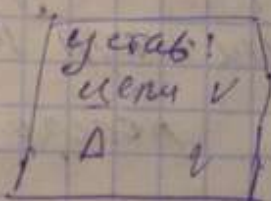 устав:
цели v
Δ v